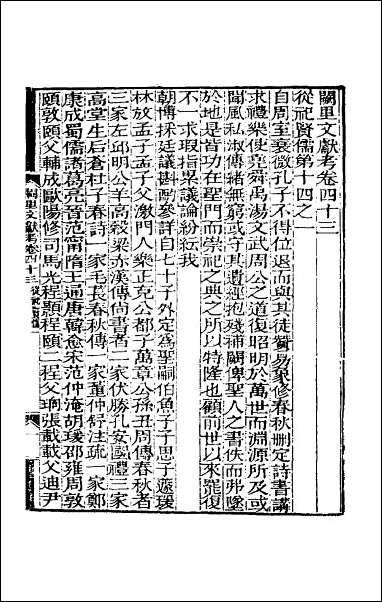 闕里文獻考卷四十三
從祀賢儒第十四之一
自周室衰微孔子不得位退而與其徒贊易象修春秋刪定詩書講
求禮樂使堯舜禹湯文武周公之道復昭明於萬世而淵源所及或
聞風私淑傳緒無窮或守其遺經抱殘補闕俾聖人之書佚而弗墜
於地是皆功在聖門而崇祀之典之所以特隆也顧前世以來罷復
不一求瑕指纇議論紛紜我
朝博採廷議斟酌參詳自七十子外定為聖嗣伯魚子子思子蘧瑗
林放孟子孟子父激門人樂正克公都子萬章公孫丑周傳春秋者
三家左邱明公羊高穀梁赤漢傳尚書者二家伏勝孔安國禮三家
高堂生后蒼杜子春詩一家毛萇春秋傳一家董仲舒注疏一家鄭
康成蜀儒諸葛亮晉范甯隋王通唐韓愈宋范仲淹胡瑗邵雍周敦
頤敦頤父輔成歐陽修司馬光程顥程頤二程父珦張載載父迪尹
闕里文獻考 卷四十三 從祀賢儒 一